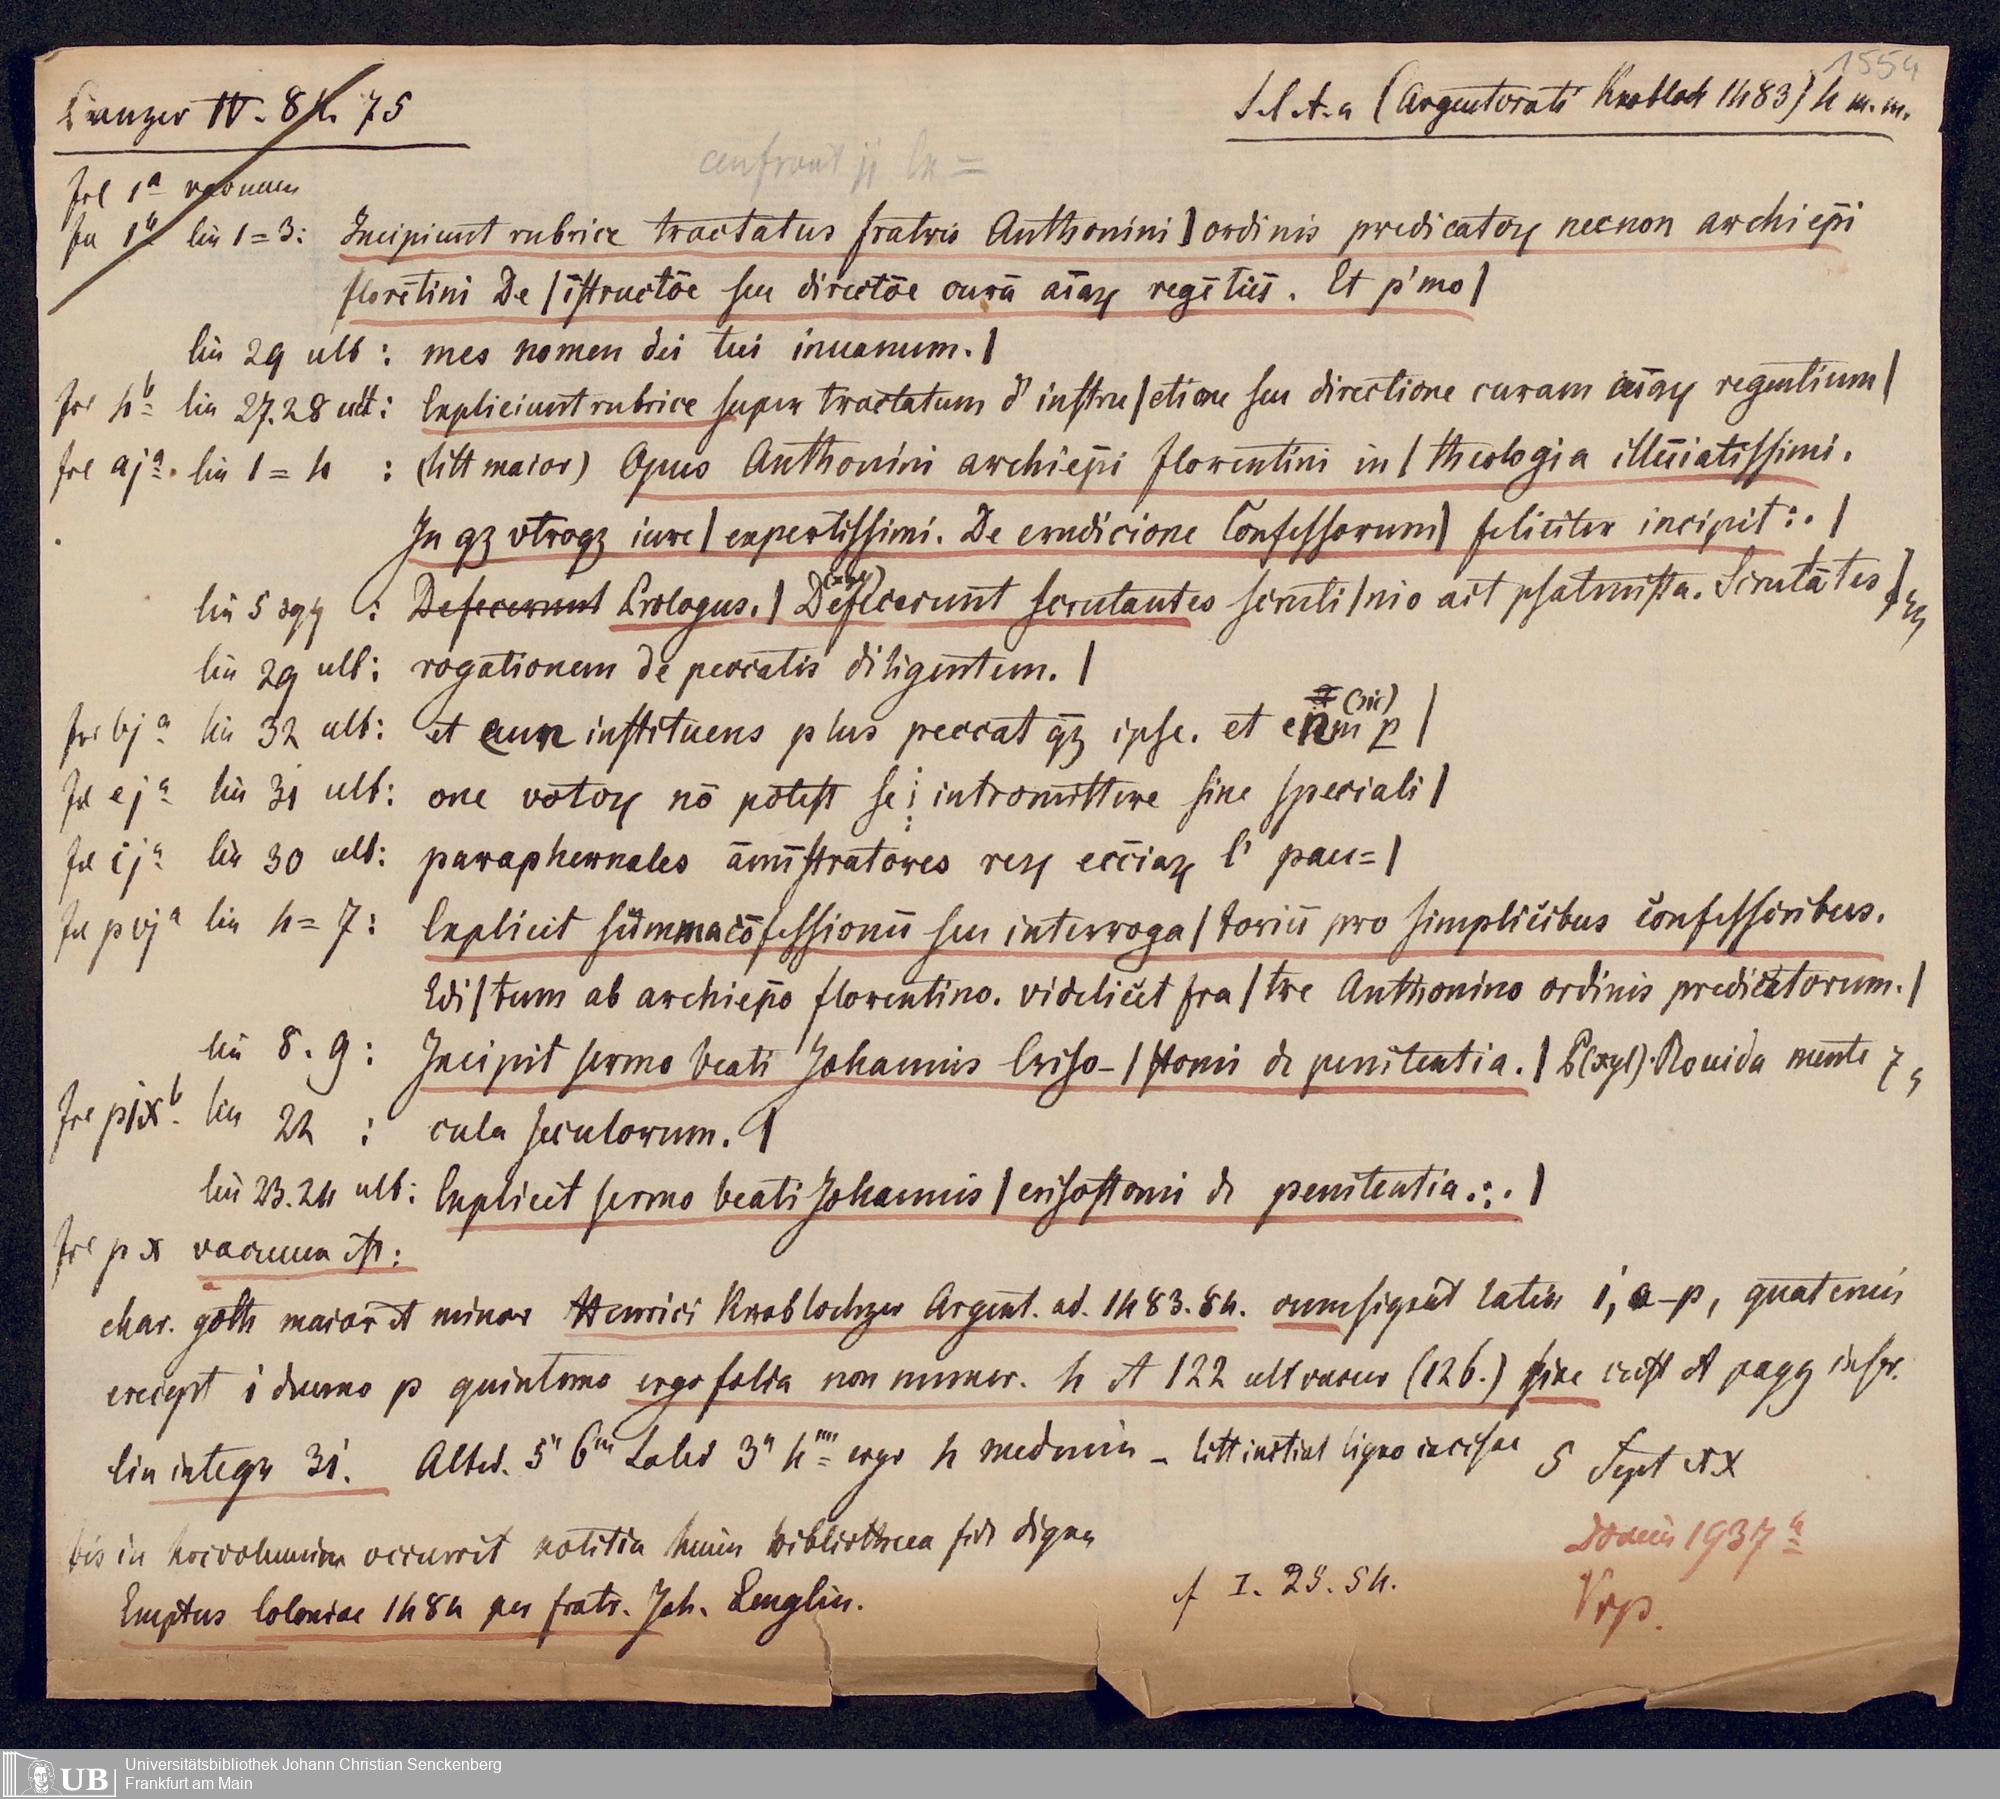 1554
Panzer IV. 84. 75
S. l. et a (Argentorati Knobloch 1483) 4 m. m.
confront
fol 1a vacuum
fol 1b lin 1=3: Incipiunt rubrice tractatus fratris Anthonini | ordinis predicatoꝝ necnon archiep̄i
florētini De | īstructōe seu directōe curā aīaꝝ regētiū. Et p'mo |
lin 29 ult: mes nomen dei tui inuanum. |
fol 4b lin 27.28 ult: Expliciunt rubrice super tractatum d' instru | ctione seu directione curam aīaꝝ regentium |
fol aja. lin 1=4 : (litt maior) Opus Anthonini archiep̄i florentini in | theologia illūiatissimi.
In qꝫ vtroqꝫ iure | expertissimi. De erudicione Confessorum | feliciter incipit :. |
lin 5 sqq : Defecerunt Prologus. | D(xyl)efecerunt scrutantes scruti | nio ait psalmista. Scrutātes
lin 29 ult: rogationem de peccatis diligentem. |
fol bja lin 32 ult: et eum instituens plus peccat qꝫ ipse. et enm (sic) p |
fol eja lin 31 ult: one votoꝝ nō potest se intromittere sine speciali |
fol ija lin 30 ult: paraphernales āmīstratores reꝝ ecc̄iaꝝ l' pau= |
fol pvja lin 4=7: Explicit summa cōfessionū seu interroga | toriū pro simplicibus confessoribus.
Edi | tum ab archiep̄o florentino. videlicet fra | tre Anthonino ordinis predicatorum. |
lin 8. 9: Incipit sermo beati Johannis Criso- | stomi de penitentia. | P(xyl) Rouida mente
fol pixb. lin 22 : cula seculorum. |
lin 23.24 ult: Explicit sermo beati Johannis | crisostomi de penitentia :. |
fol px vacuum est:
char. goth maior et minor Henrici Knoblochzer Argent. ad. 1483.84. cum signat latin i, a-p, quaternis
except i duerno p quinterno ergo folia non numer. 4 et 122 ult vacuo (126.) sine cust et pagg inscr.
lin integr 31. Altid. 5" 6"' Latid 3" 4"' ergo 4 medium - litt initial ligno incisae 5 Sept XX
bis in hoc volumine occurrit notitia huius bibliothecae fide digna
Emptus Coloniae 1484 per fratr. Joh. Lenglin.
cf I. 25. 54.
1937